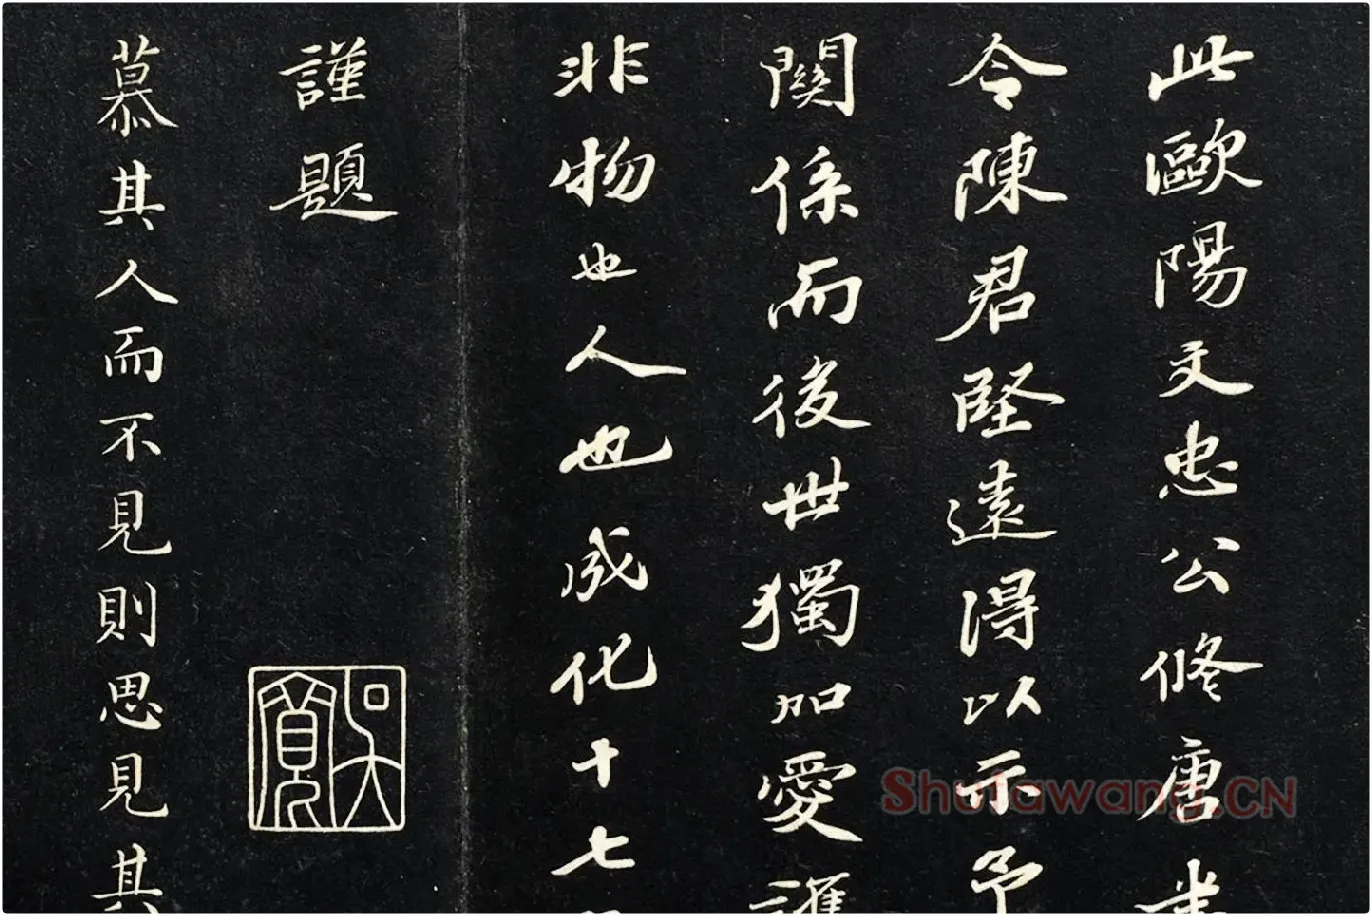 此歐陽文忠公修唐
令陳君堅遠得以示予
關係而後世獨加愛護
非物也人也成化十七
謹題
吳寬
慕其人而不見則思見其
Shufawang.CN